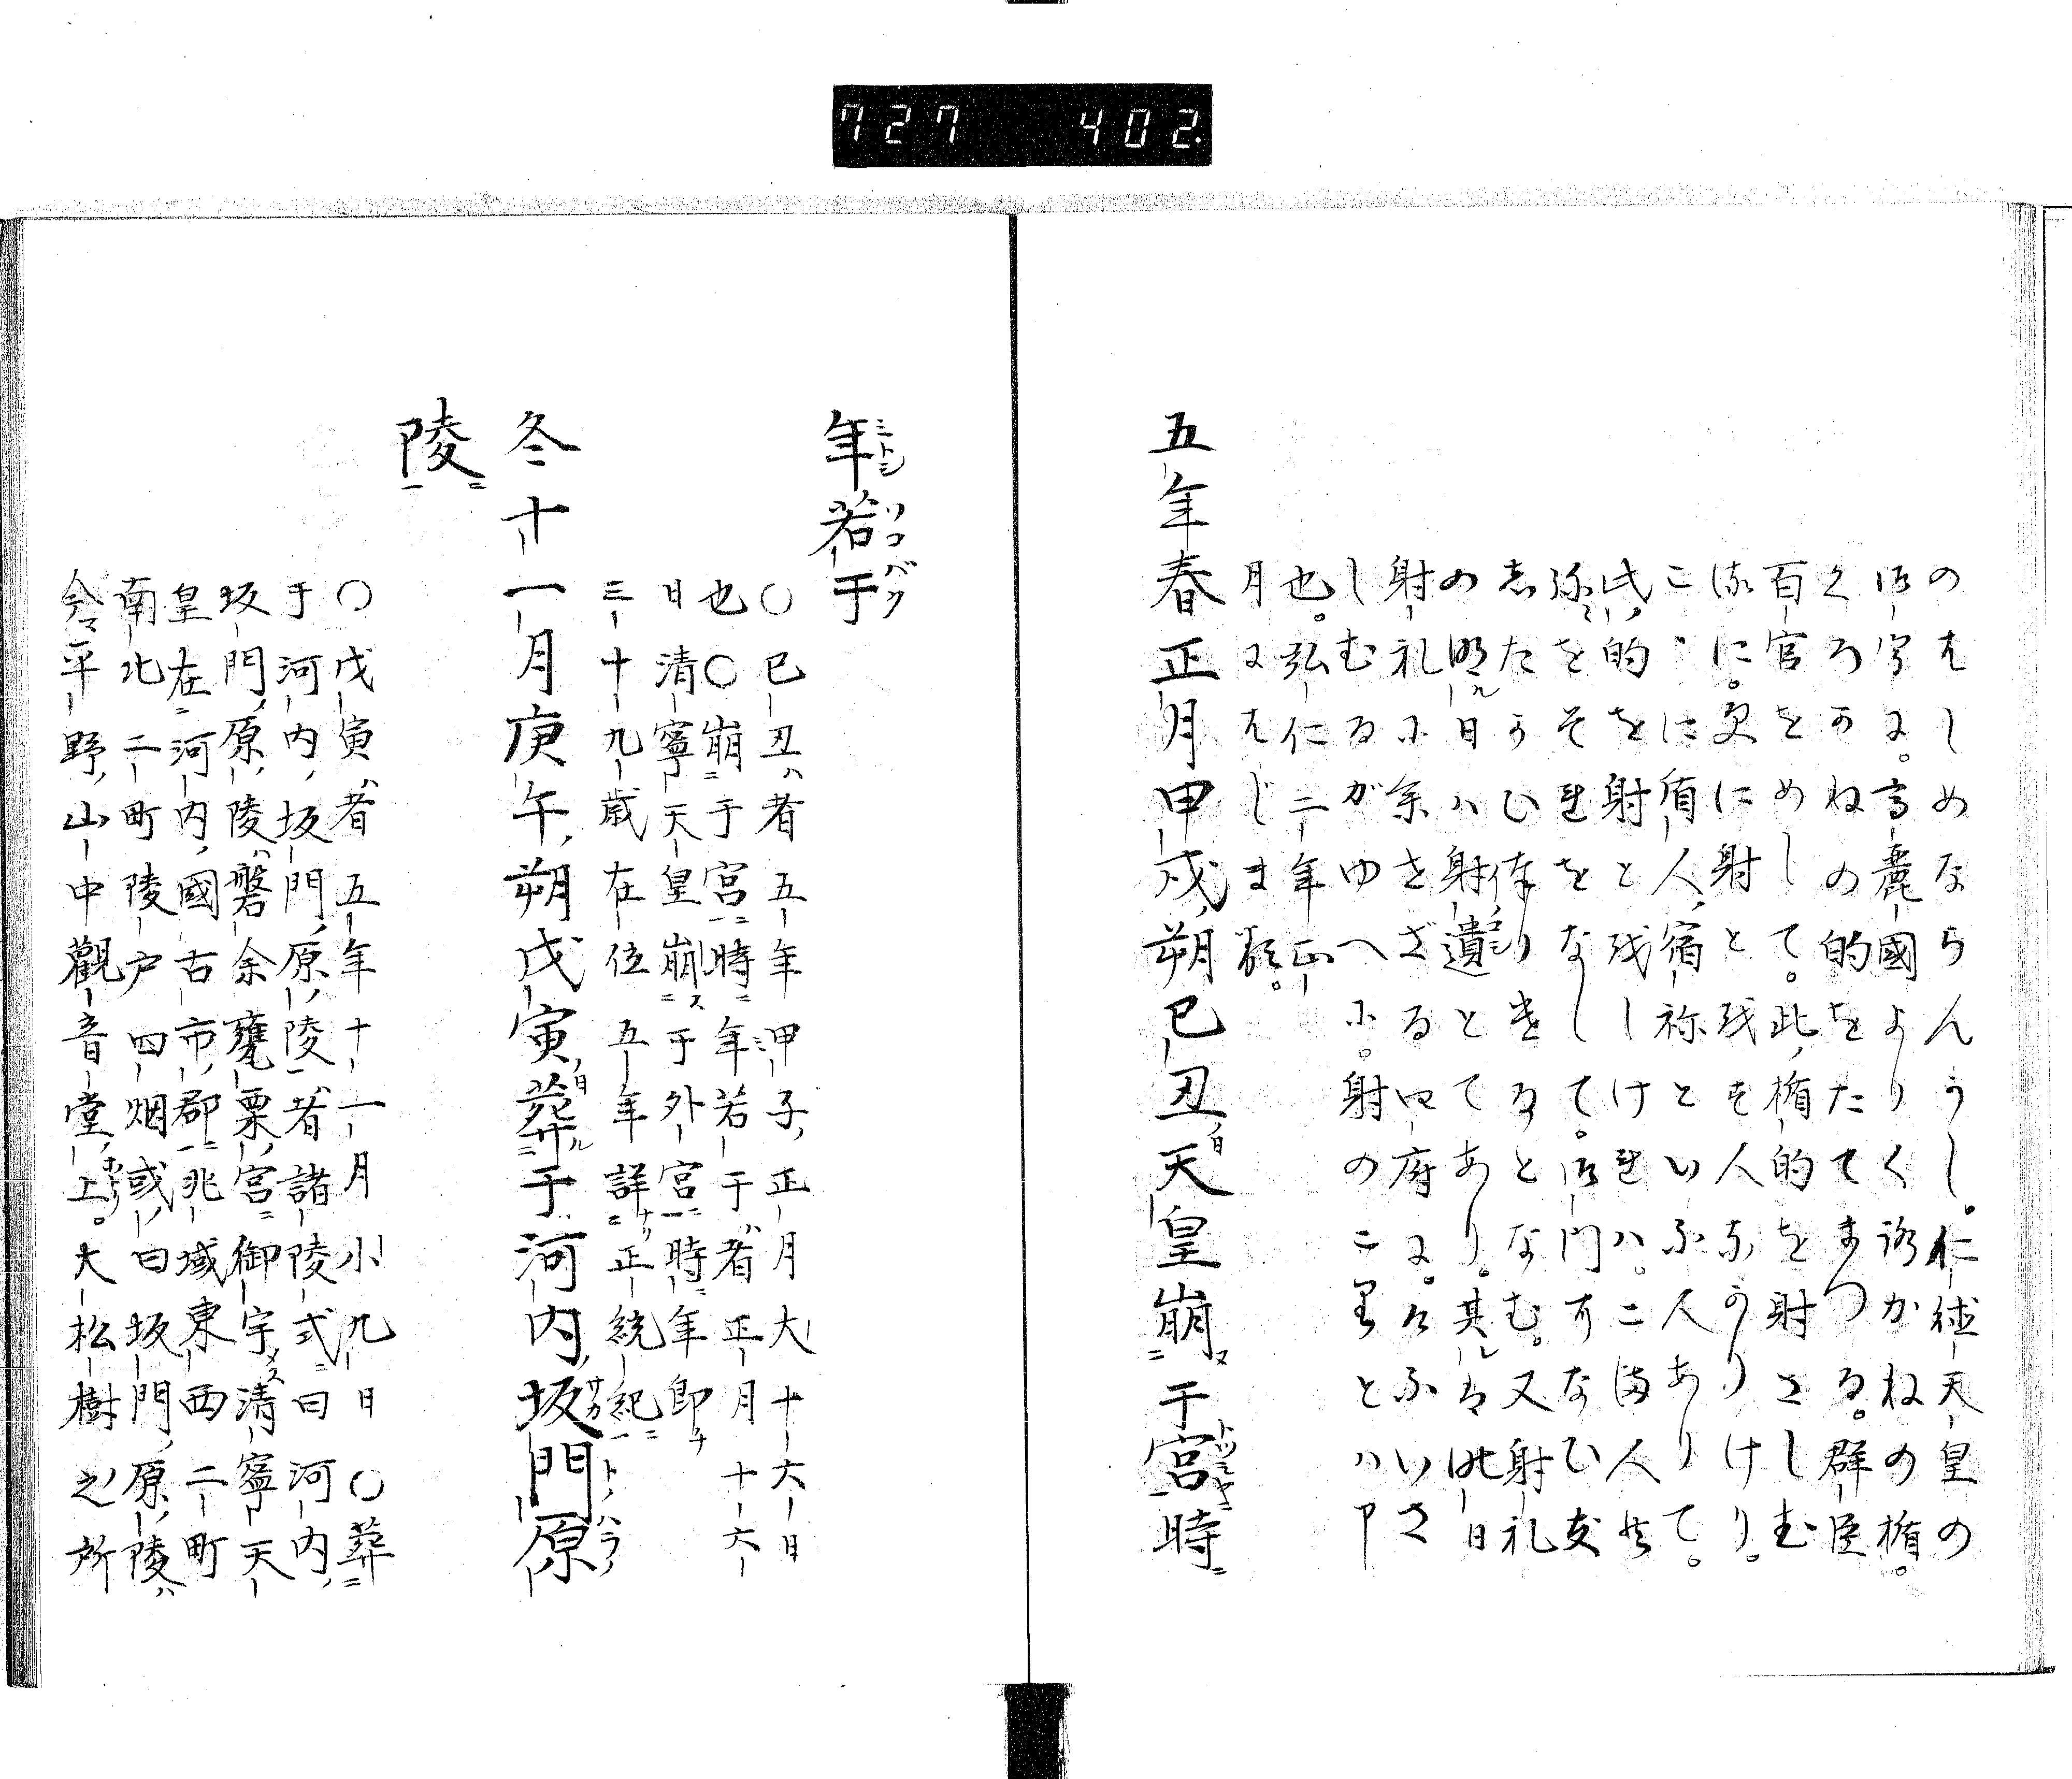 727 402.
のはしめならんかし。仁徳天皇の
御宇に。高麗國よりくろかねの楯。
くろかねの的をたてまつる。群臣
百官をめして。此楯的を射さしむ
るに。更に射とをす人なかりけり。
こゝに盾人宿祢といふ人ありて。
此的を射とをしけれハ。こま人共
弥をそれをなして。御門になひき
したかひ奉りけるとなむ。又射礼
の明ル日ハ射遺とてあり。其ルは此日
射礼に參さざる四府に。けふいさ
しむるがゆへに。射のこりとハ申
也。弘仁二年正
月にはじまる。
五年春正月甲戌朔己丑日天皇崩于宮時
年若于
○己丑者五年甲子正月大十六日
也○崩于宮時年若于者正月十六
日清寧天皇崩于外宮時年即
三十九歳在位五年詳正統紀
冬十一月庚午朔戊寅日葬于河内坂門原
陵
○戊寅者五年十一月小九日○葬
于河内坂門原陵者諸陵式曰河内
坂門原陵磐余甕栗宮御宇清寧天
皇在河内國古市郡兆域東西二町
南北二町陵戸四烟或曰坂門原陵
今平野山中觀音堂上。大松樹之所